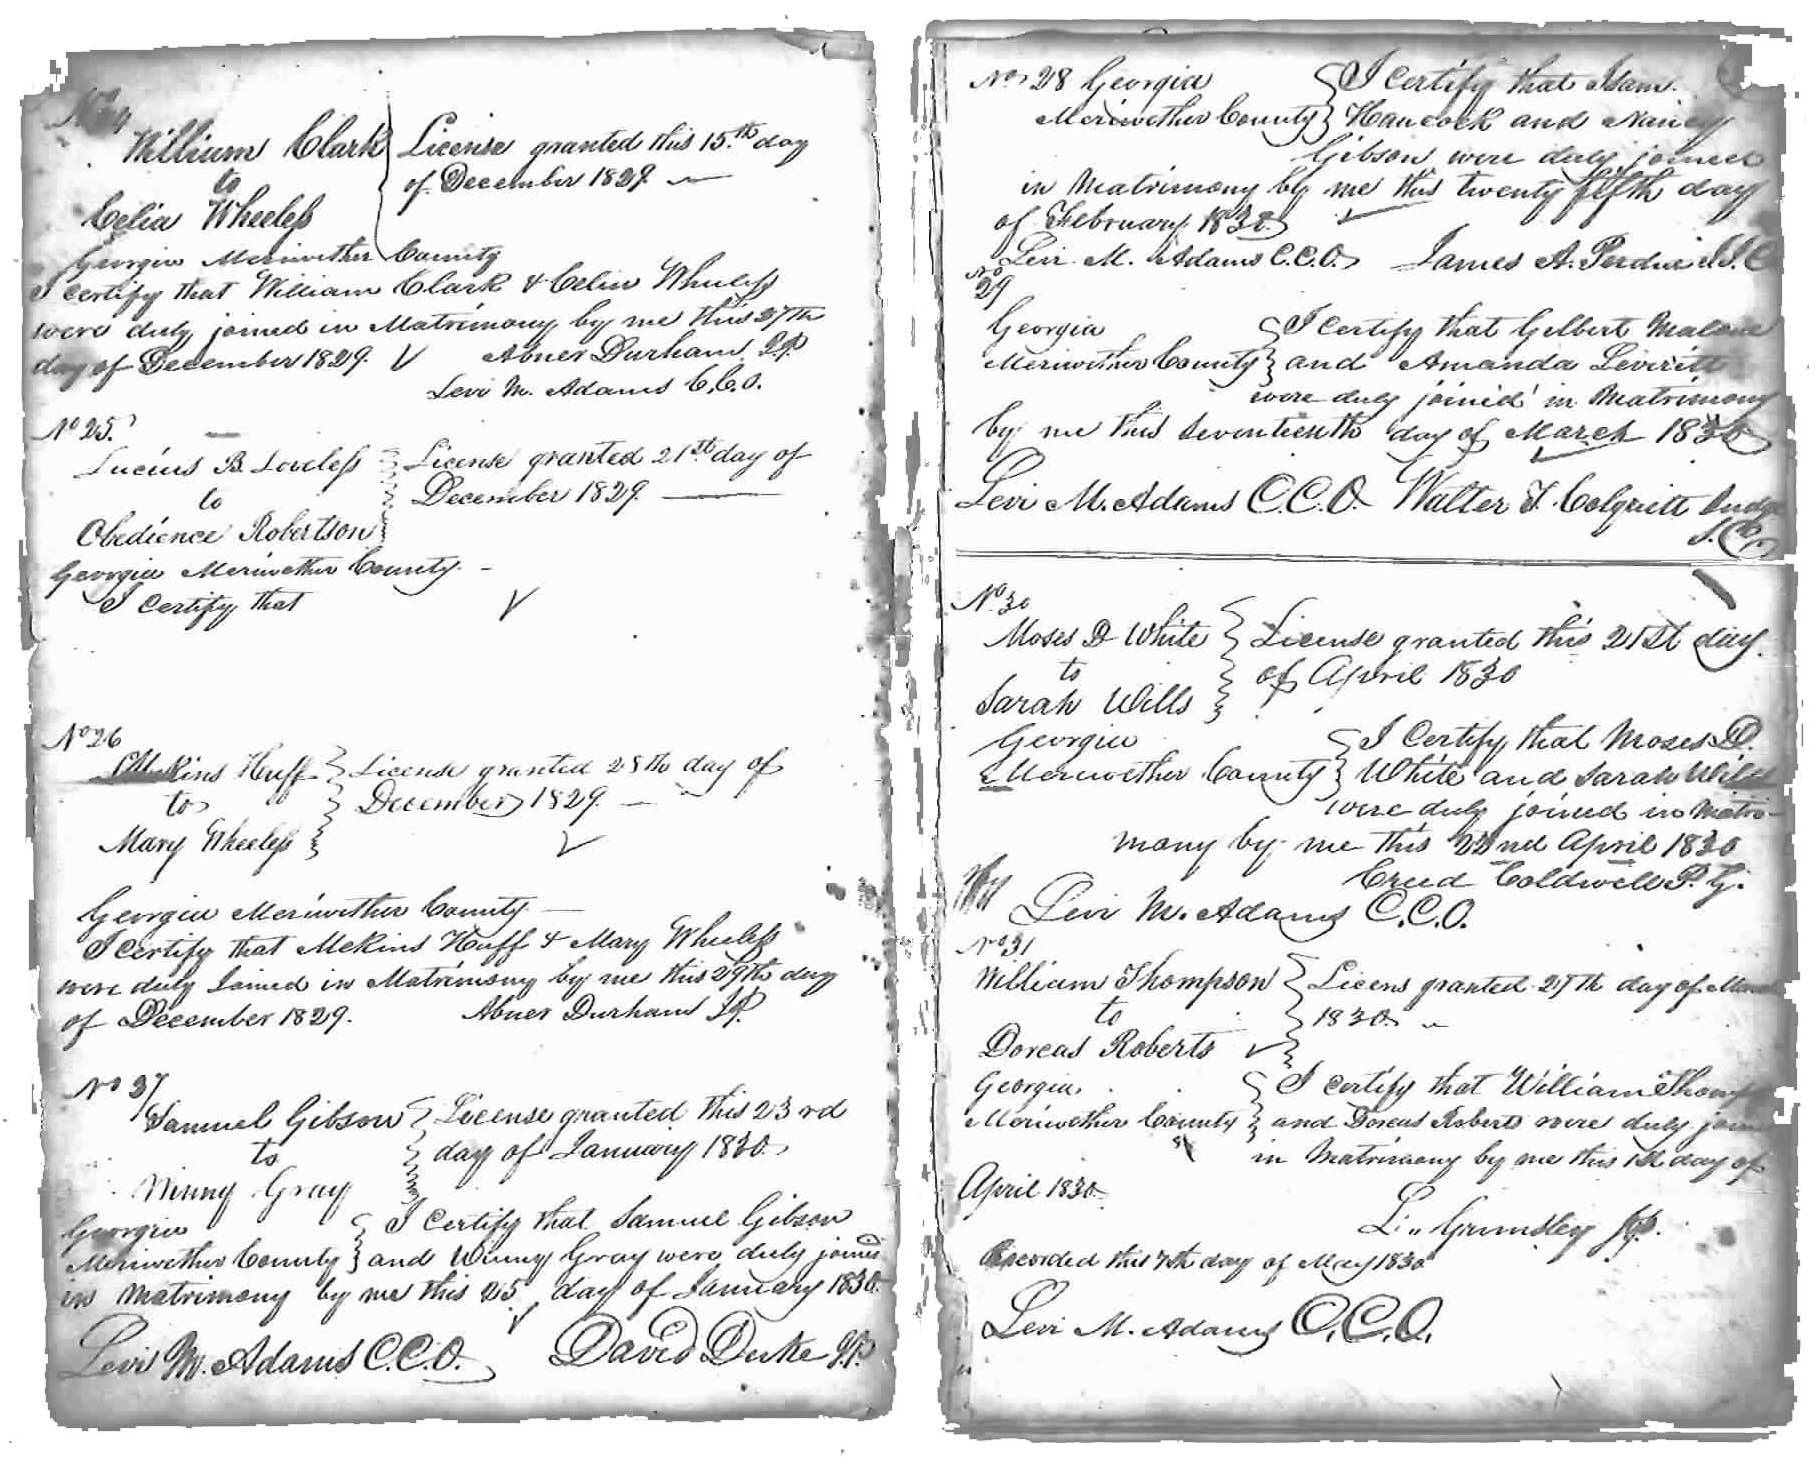 No 24
William Clark
to
Celia Wheeless
License granted this 15th day
of December 1829.
Georgia Meriwether County
I certify that William Clark & Celia Wheeless
were duly joined in Matrimony by me this 27th
day of December 1829. Abner Durham J.P.
Levi M. Adams C.C.O.
No 25.
Lucius B. Loveless
to
Obedience Robertson
License granted 21st day of
December 1829.
Georgia Meriwether County.
I certify that
No 26
Mekins Huff
to
Mary Wheeless
License granted 28th day of
December 1829.
Georgia Meriwether County
I certify that Mekins Huff & Mary Wheeless
were duly Joined in Matrimony by me this 29th day
of December 1829. Abner Durham J.P.
No 37
Samuel Gibson
to
Winny Gray
License granted this 23rd
day of January 1830.
Georgia
Meriwether County
I Certify that Samuel Gibson
and Winny Gray were duly joined
in Matrimony by me this 25 day of January 1830.
Levi M. Adams C.C.O. David Duke J.P.
No 28 Georgia
Meriwether County
I certify that Isam
Hancock and Nancy
Gibson were duly joined
in Matrimony by me this twenty fifth day
of February 1830.
Levi M. Adams C.C.O. James A. Perdue J.I.C
No 29
Georgia
Meriwether County
I certify that Gilbert Malone
and Amanda Leverett
were duly joined in Matrimony
by me this seventeenth day of March 1830
Levi M. Adams C.C.O. Walter T. Colquitt Judge
No 30
Moses D White
to
Sarah Wills
License granted this 21st day
of April 1830
Georgia
Meriwether County
I Certify that Moses D.
White and Sarah Wills
were duly joined in Matri-
mony by me this 22nd April 1830
Creed Coldwell P.G.
Levi M. Adams C.C.O.
No 31
William Thompson
to
Dorcas Roberts
Licens granted 29th day of March
1830.
Georgia
Meriwether County
I certify that William Thomp
and Dorcas Roberts were duly join
in Matrimony by me this 1st day of
April 1830.
L. Grimsley J.P.
Recorded this 7th day of May 1830
Levi M. Adams C.C.O.